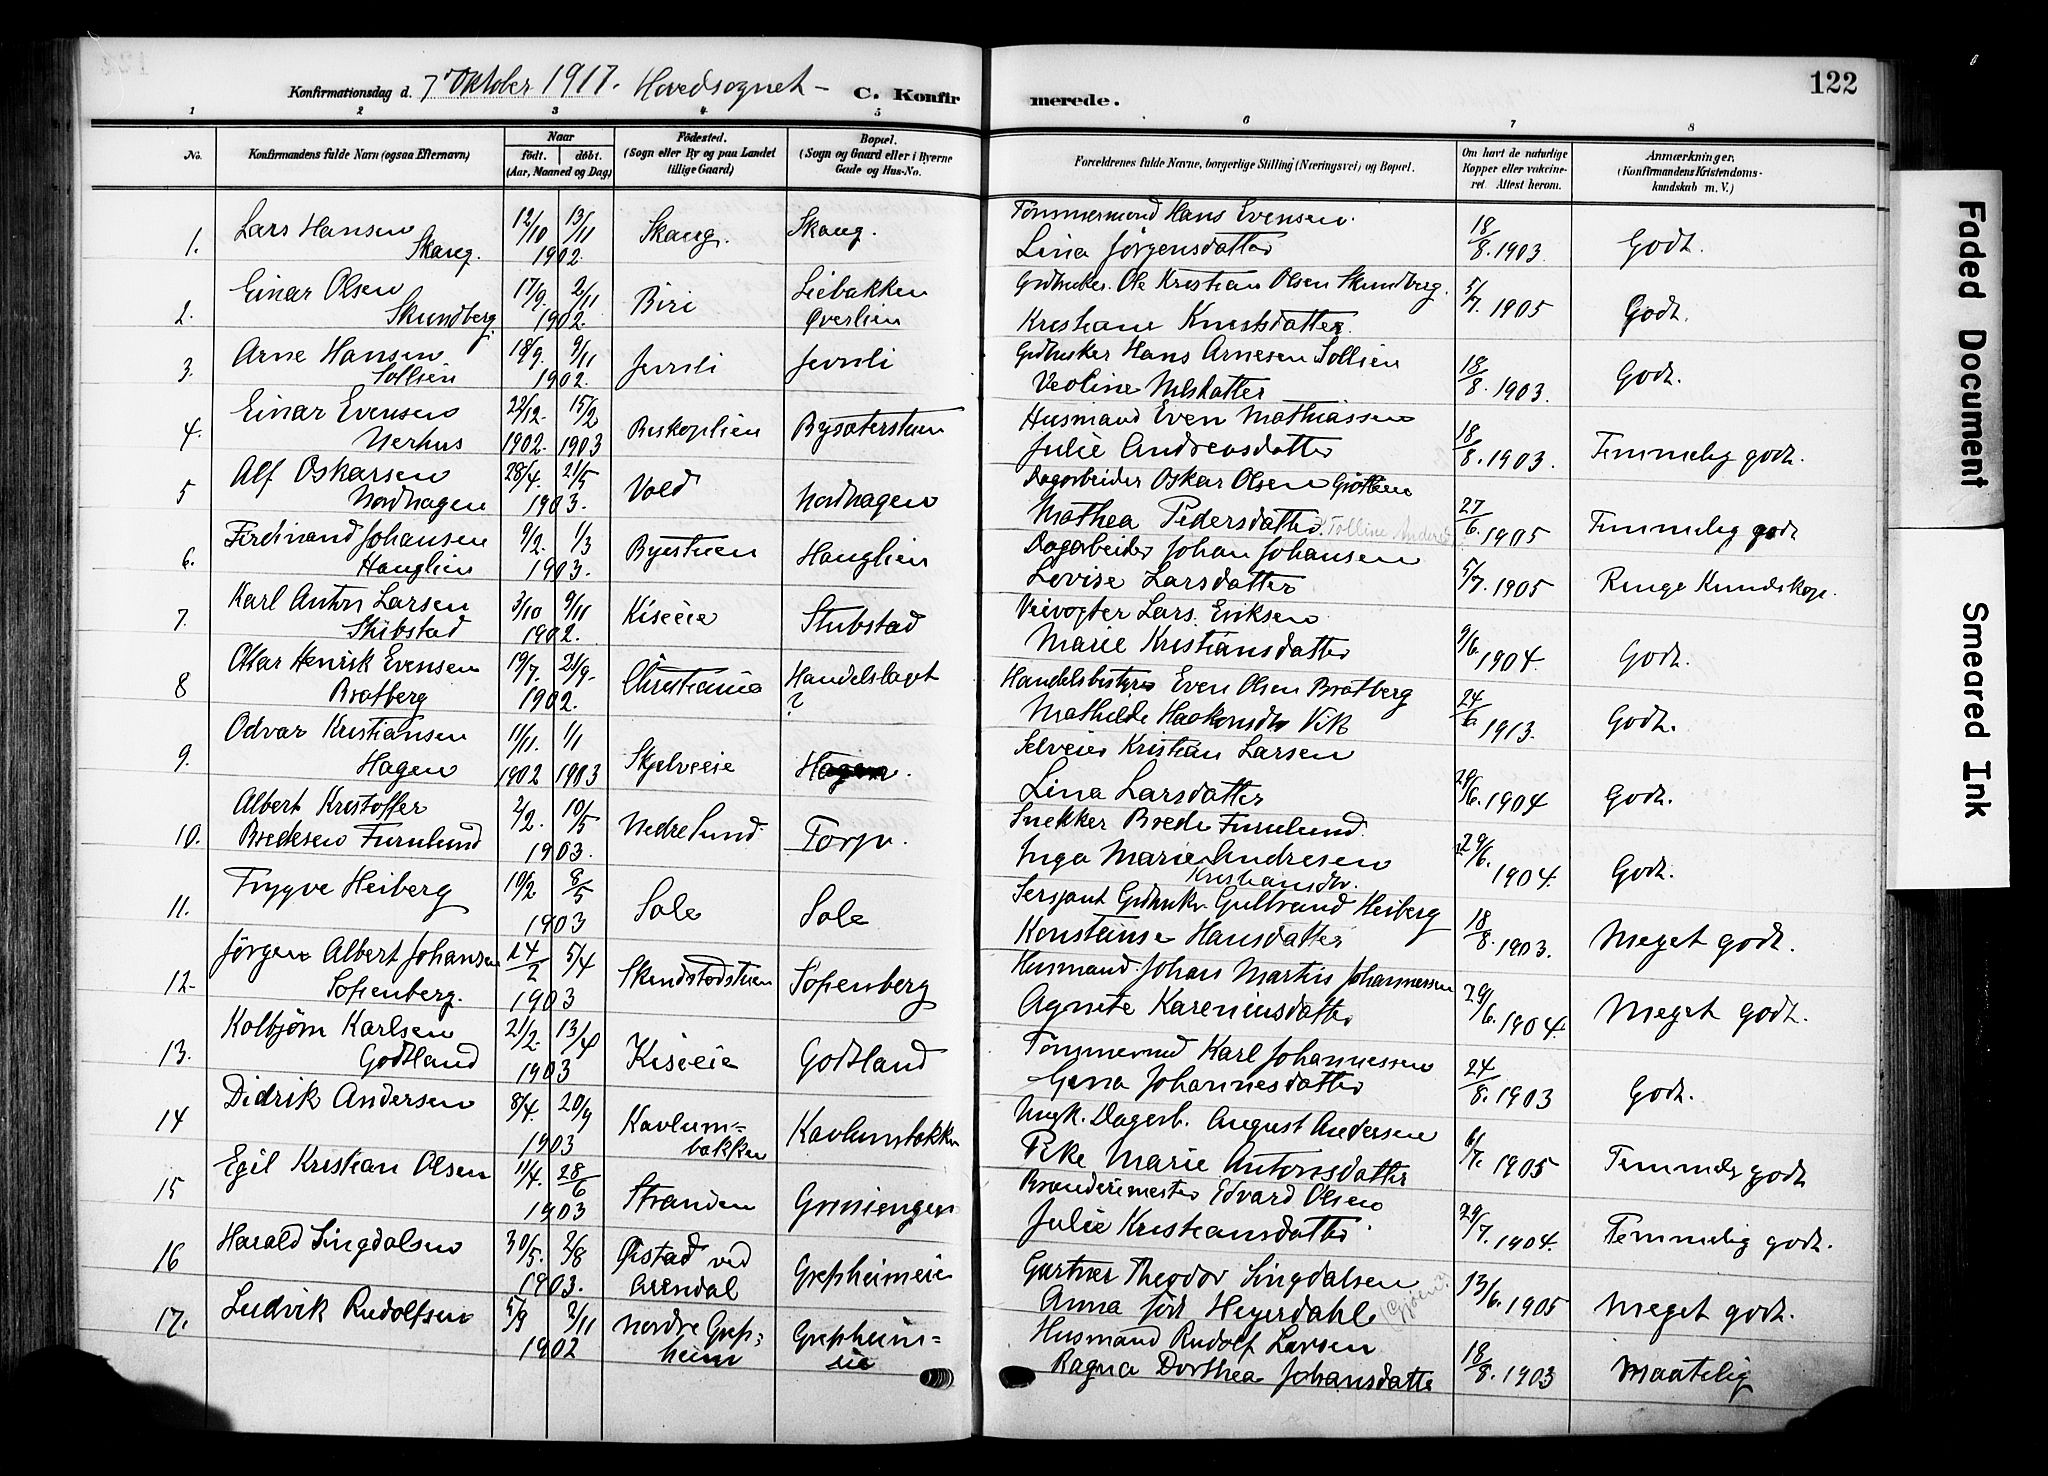 Konfirmationsdag d. 7' Oktober 1917. Hovedsognet – C. Konfirmerede. 122
1 2 3 4 5 6 7 8
No. Konfirmandens fulde Navn (ogsaa Efternavn) Naar født. døbt. (Aar, Maaned og Dag) Fødested. (Sogn eller By og paa Landet tillige Gaard) Bopæl. (Sogn og Gaard eller i Byerne Gade og Hus-No. Forældrenes fulde Navne, borgerlige Stilling (Næringsvei) og Bopæl. Om havt de naturlige Kopper eller vakcineret. Attest herom. Anmærkninger, (Konfirmandens Kristendomskundskab m. V.)
1. Lars Hansen Skaug. 12/10 13/11 1902. Skaug. Skaug. Tømmermand Hans Evensen. Lina Jørgensdatter 18/8. 1903. Godt.
2. Einar Olsen Skundberg. 17/9. 2/11 1902. Biri Liebakken Øverlien Grdbruker. Ole Kristian Olsen Skundberg. Kristiane Knutsdatter. 5/7. 1905 Godt.
3. Arne Hansen Sollien 18/9. 9/11 1902. Jevnli Jevnli Grdbruker Hans Arnesen Sollien Veoline Nilsdatter 18/8. 1903. Godt.
4. Einar Evensen Nerhus 22/12. 15/2 1902. 1903 Biskoplien Bysæterstuen Husmand Even Mathiassen Julie Andreasdatter 18/8. 1903. Temmelig godt.
5 Alf Oskarsen Nordhagen 28/4. 21/5 1903. Vold Nordhagen Dagarbeider Oskar Olsen Mathea Pedersdatter. 27/6. 1905 Temmelig godt
6. Ferdinand Johansen Hauglien 9/2. 1/3 1903. Byestuen Hauglien Dagarbeider Johan Johansen Lovise Larsdatter 5/7. 1905 Ringe Kundskap.
7. Karl Anton Larsen Stubstad 3/10 9/11 1902. Kiseeie Stubstad Veivogter Lars. Eriksen Marie Kristiansdatter 9/6. 1904. Godt.
8 Ottar Henrik Evensen Bratberg 19/7. 21/9. 1902. Christiania Handelslaget ? Handelsbestyrer Even Olsen Bratberg Mathilde Haakonsdtr Vik 24/6. 1913. Godt.
9. Odvar Kristiansen Hagen 11/11. 1/1 1902 1903 Skjelveeie Hagen. Selveier Kristian Larsen Lina Larsdatter 29/6. 1904 Godt.
10. Albert Kristoffer Bredesen Furulund 2/2. 10/5 1903. Nedre Sund. Torp. Snekker Brede Furulund. Inga Marie Andresen Kristiansdtr. 29/6. 1904. Godt.
11. Trygve Heiberg 10/2. 8/5 1903 Sole Sole Sersjant Grdbruker Gulbrand Heiberg Konstanse Hansdatter 18/8. 1903. Meget godt.
12. Jørgen Albert Johansen Sopenberg. 24/2 5/4 1903 Skundstadstuen Sopenberg Husmand. Johan Martin Johannessen Agnete Kareniusdatter 29/6. 1904. Meget godt.
13. Kolbjørn Karlsen Godtland 21/2. 13/4 1903 Kiseeie Godtland Tømmermd Karl Johannessen Gina Johannesdatter 24/8. 1903 Godt.
14 Didrik Andersen 8/4. 20/9 1903 Kavlumbakken Kavlumbakken Ungk. Dagarb. August Andersen Pike Marie Antonsdatter 6/7. 1905 Temmelig godt
15 Egil Kristian Olsen 11/4. 28/6 1903 Stranden Griniengen Brænderimester Edvard Olsen Julie Kristiansdatter. 29/7. 1904. Temmelig godt.
16 Harald Lingdalsen 30/5. 2/8 1903. Øistad ved Arendal Grepheimeie Gartner Theodor Lingdalsen Anna født Heyerdahl 13/6. 1905 Meget godt.
17. Ludvik Rudolfsen 5/9 2/11 1902 Nordre Grepheim Grepheimeie Husmand Rudolf Larsen Ragna Dorthea Johansdatter 18/8. 1903 Maatelig
Faded Document
Smeared Ink